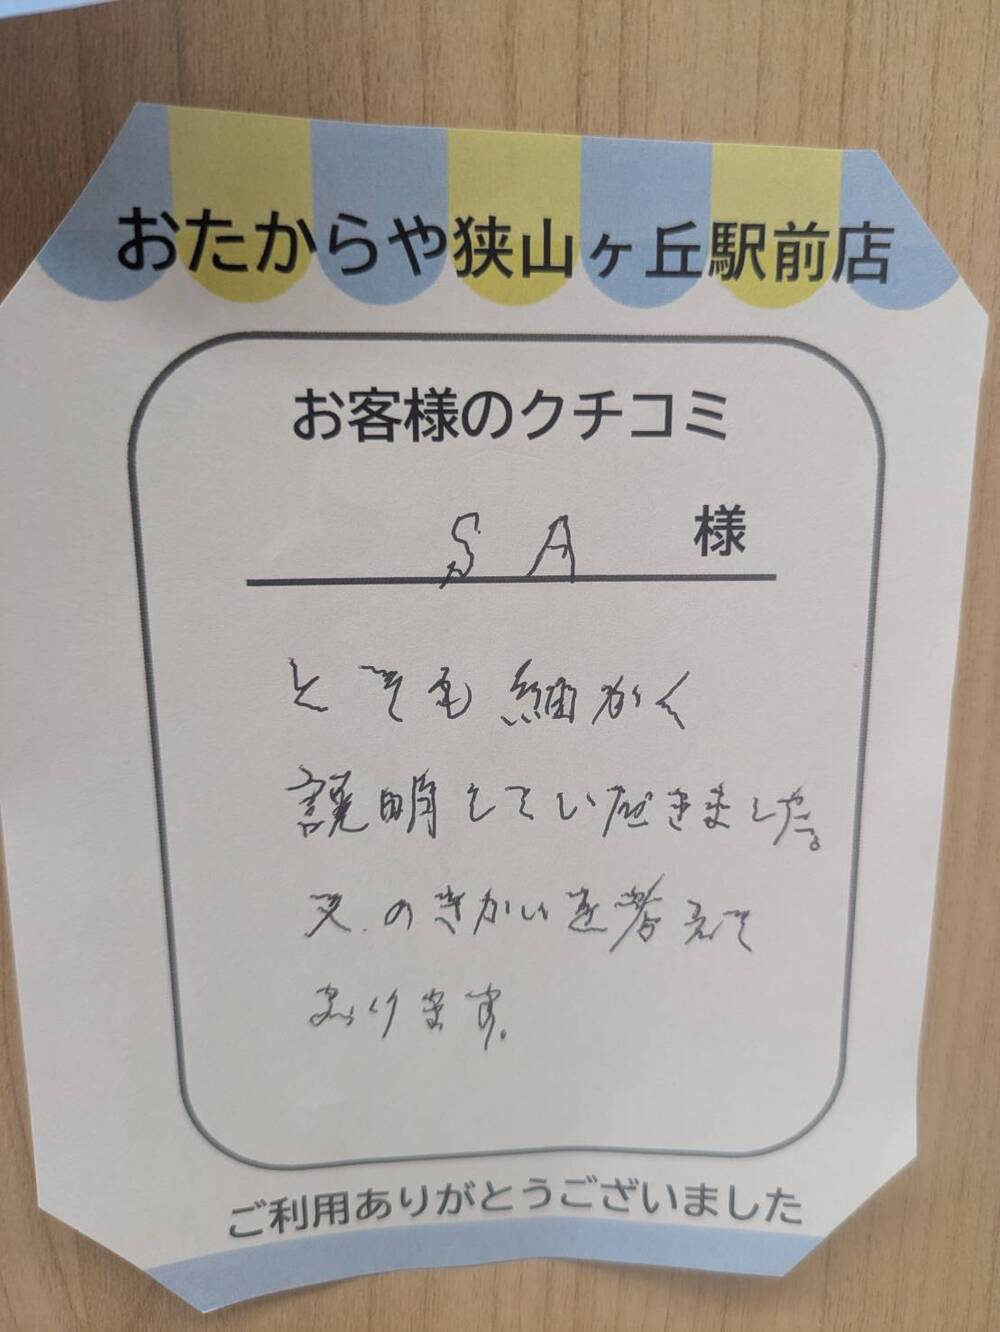 おたからや狭山ヶ丘駅前店
お客様のクチコミ
S A 様
とても細かく
説明していただきました。
又のきかいを考えて
おります。
ご利用ありがとうございました